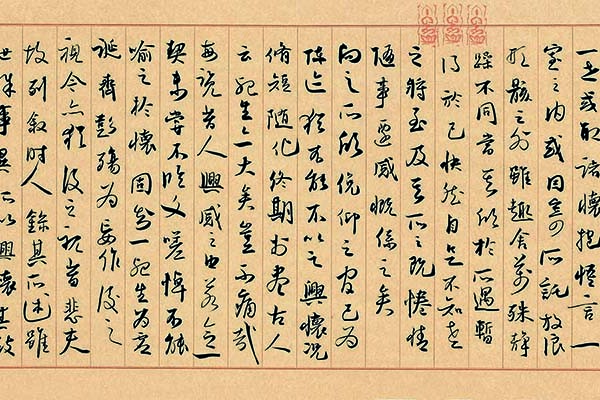 一世或取諸懷抱悟言一
室之內或因寄所託放浪
形骸之外雖趣舍萬殊靜
躁不同當其欣於所遇暫
得於己快然自足不知老
之將至及其所之既惓情
隨事遷感慨係之矣
向之所欣俛仰之間已為
陳迹猶不能不以之興懷況
脩短隨化終期於盡古人
云死生亦大矣豈不痛哉
每覽昔人興感之由若合一
契未嘗不臨文嗟悼不能
喻之於懷固知一死生為虛
誕齊彭殤為妄作後之
視今亦猶之視昔悲夫
故列敘時人錄其所述雖
世殊事異所以興懷其致